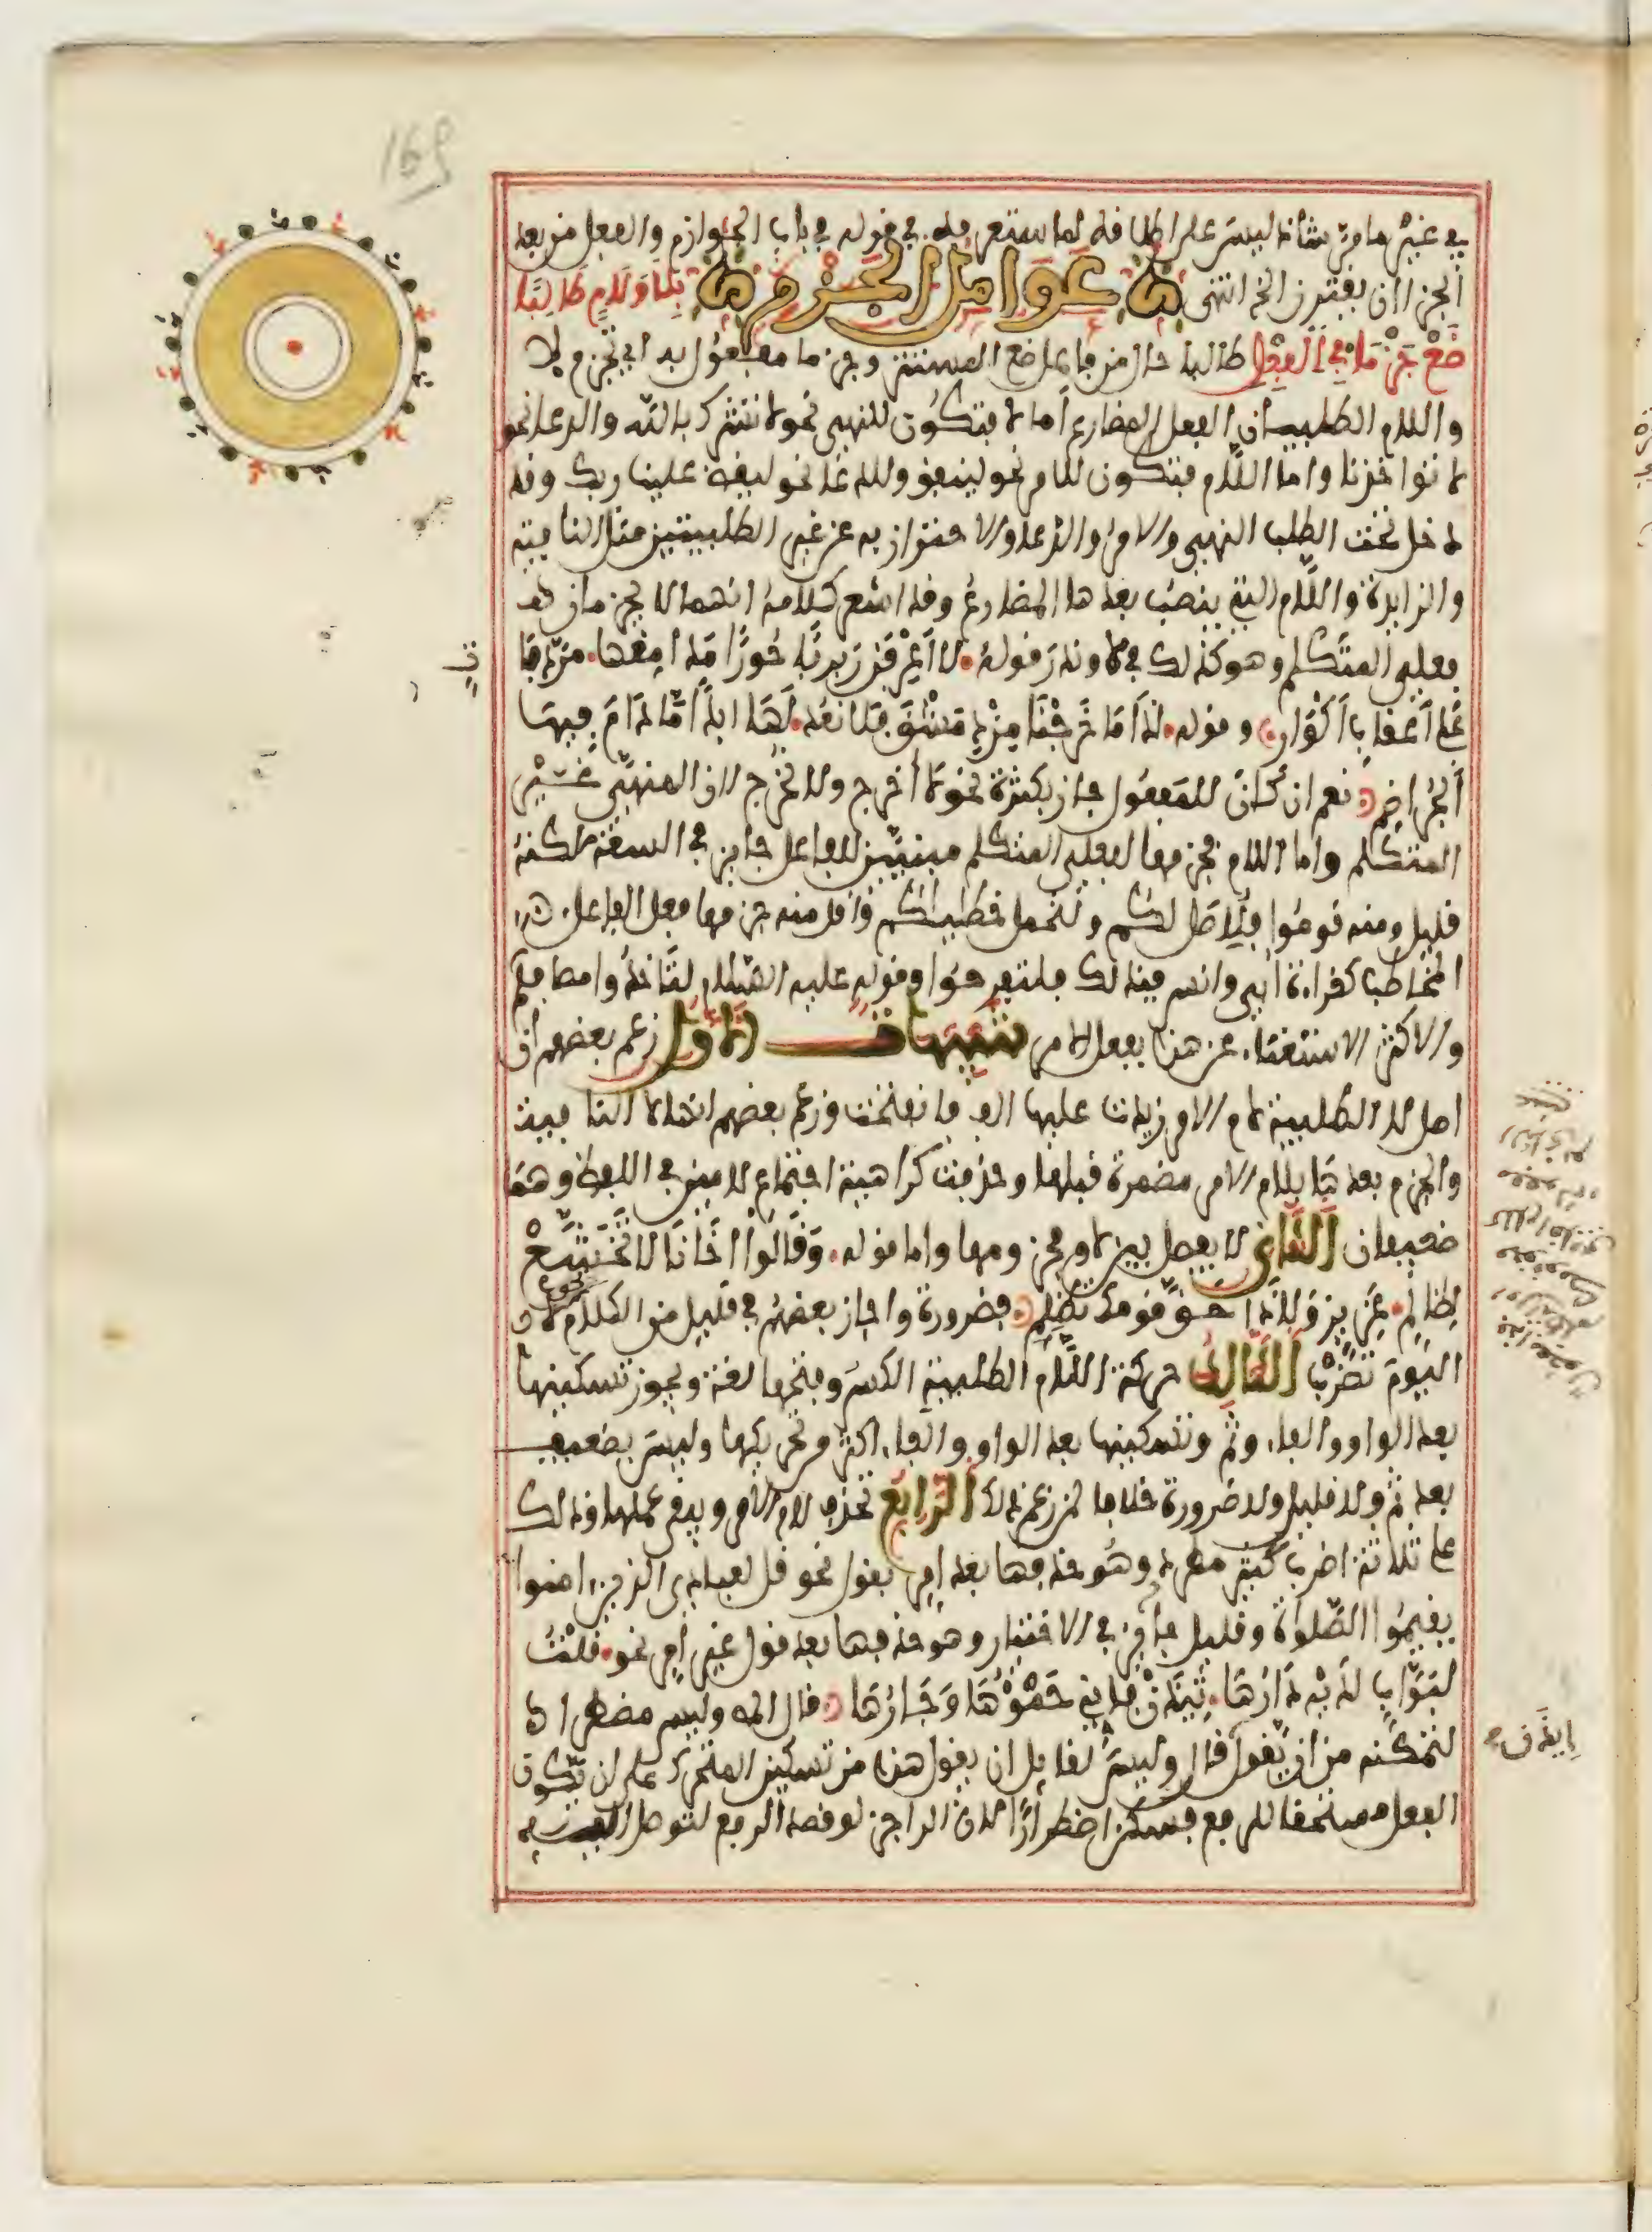 169
في غير ما مر شاذ ليس على اطلاقه لما ستعرفه في قوله في باب الجوازم والفعل من بعد
الجزا ان يقترن الخ انتهى عوامل الجزم بلا ولام طالبا
ضع جزما في الفعل طالبا حال من فاعل ضع المستتر وجزما مفعول به اي تجزم لا
واللام الطلبيتان الفعل المضارع اما لا فتكون للنهي نحو لا تشرك بالله والدعا نحو
لا تؤاخذنا واما اللام فتكون للامر نحو لينفق وللدعا نحو ليقض علينا ربك وقد
دخل تحت الطلب النهي والامر والدعا والاحتراز به عن غير الطلبيتين مثل النافية
والزايدة واللام التي ينصب بعدها المضارع وقد اشعر كلامه انهما لا يجزمان
فعلي المتكلم وهو كذلك في لا وندر قوله لا اعرفن ربربا حورا مدامعها مردفا
على اعقاب اكوار وقوله اذا ما خرجنا من دمشق فلا نعد لها ابدا ما دام فيها
الجراضم نعم ان كان للمفعول جاز بكثرة نحو لا اخرج ولا نخرج لان المنهي غير
المتكلم واما اللام فجزمها لفعلي المتكلم مبنيين للفاعل جايز في السعة لكنه
قليل ومنه قوموا فلاصل لكم ولنحمل خطيكم واقل منه جزمها فعل الفاعل
المخاطب كقراءة ابي وانس فبذلك فلتفرحوا وقوله عليه السلام لتاخذوا مصافكم
والاكثر الاستغناء عن هذا بفعل الامر تنبيهات الاول زعم بعضهم ان
اصل لا الطلبية لام الامر زيدت عليها الف فانفتحت وزعم بعضهم انها لا النافية
والجزم بعدها بلام الامر مضمرة قبلها وحذفت كراهية اجتماع لامين في اللفظ وهما
ضعيفان الثاني لا يفصل بين لا ومجزومها واما قوله وقالوا اخانا لا تخشع
لظالم عزيز ولا ذا حق قومك تظلم فضرورة واجاز بعضهم في قليل من الكلام نحو لا
اليوم تضرب الثالث حركة اللام الطلبية الكسر وفتحها لغة ويجوز تسكينها
بعد الواو والفاء وثم وتسكينها بعد الواو والفاء اكثر من تحريكها وليس بضعيف
بعد ثم ولا قليل ولا ضرورة خلافا لمن زعم ذلك الرابع تحذف لام الامر ويبقى عملها وذلك
على ثلاثة اضرب كثير مطرد وهو حذفها بعد امر بقول نحو قل لعبادي الذين امنوا
يقيموا الصلواة وقليل جايز في الاختيار وهو حذفها بعد قول غير امر نحو قلت
لبواب لديه دارها تيذن فاني حمؤها وجارها قال المص وليس مضطرا
لتمكنه من ان يقول ايذن وليس لقايل ان يقول هذا من تسكين المتحرك على ان يكون
الفعل مستحقا للرفع فسكن اضطرارا لان الراجز لو قصد الرفع لتوصل اليه
ايذن